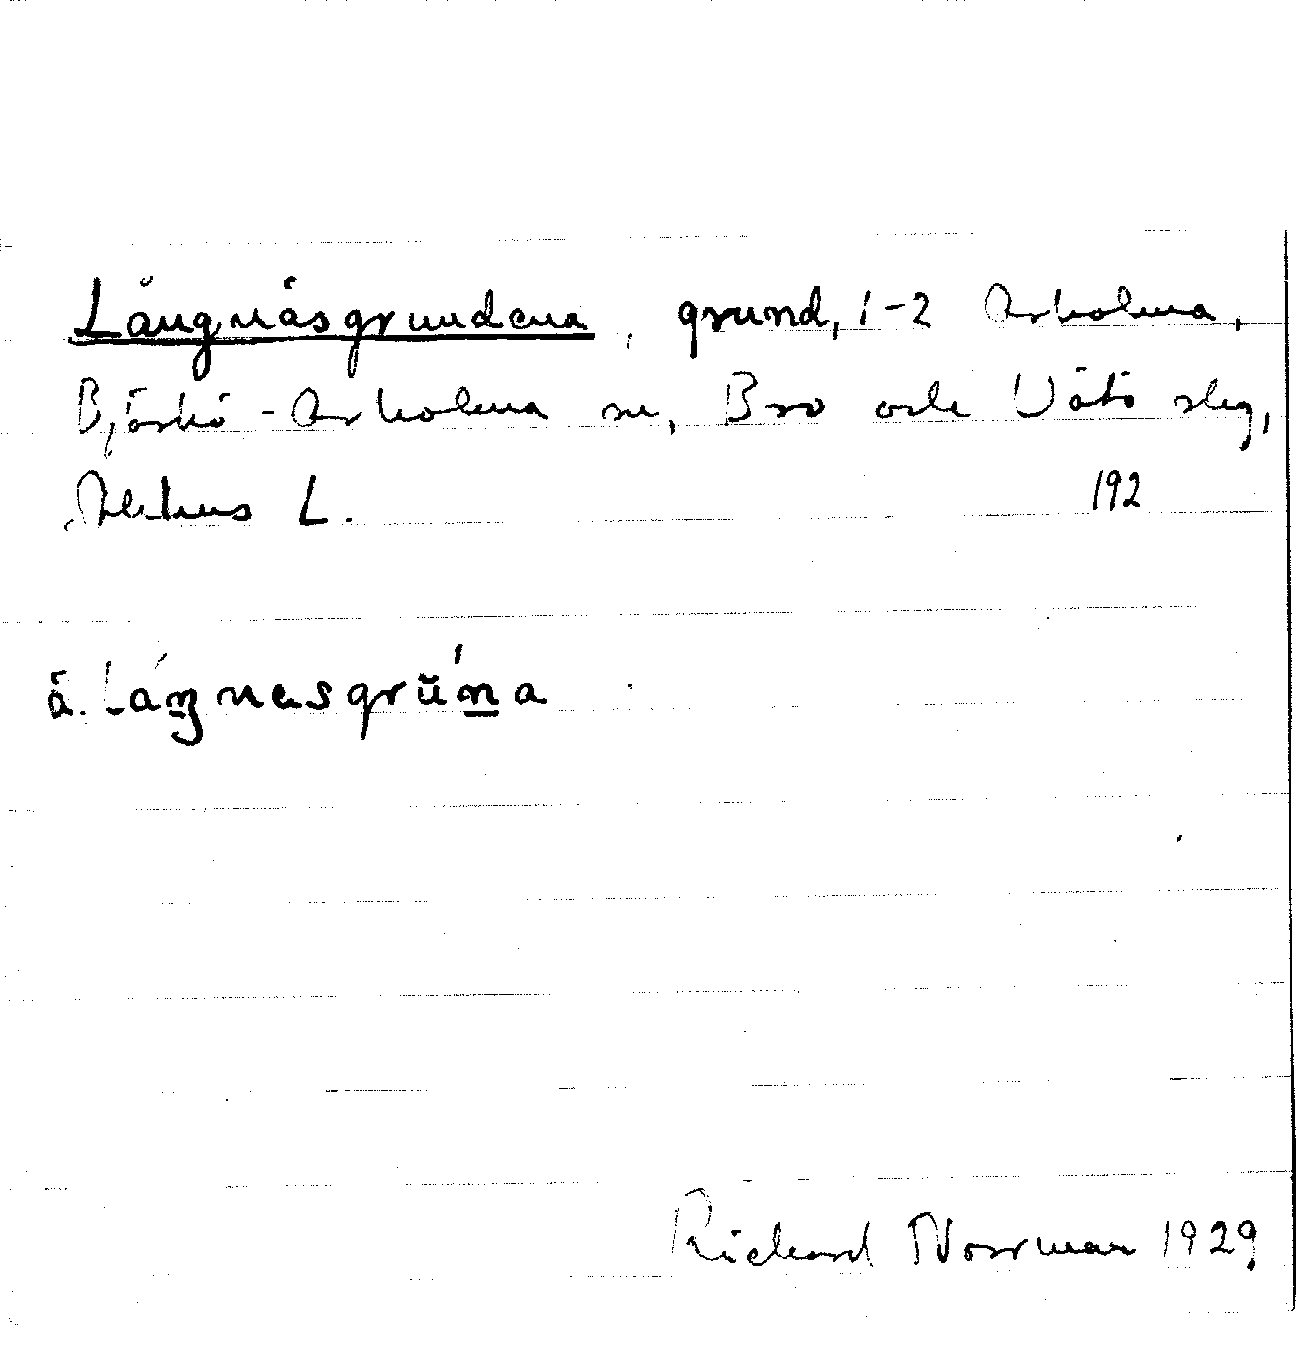 Långnäsgrundena, grund, 1-2 Arholma,
Björkö-Arholma sn, Bro och Vätö slg,
Sthms L. 192
å. låŋnesgrŭna
Richard Norrman 1929